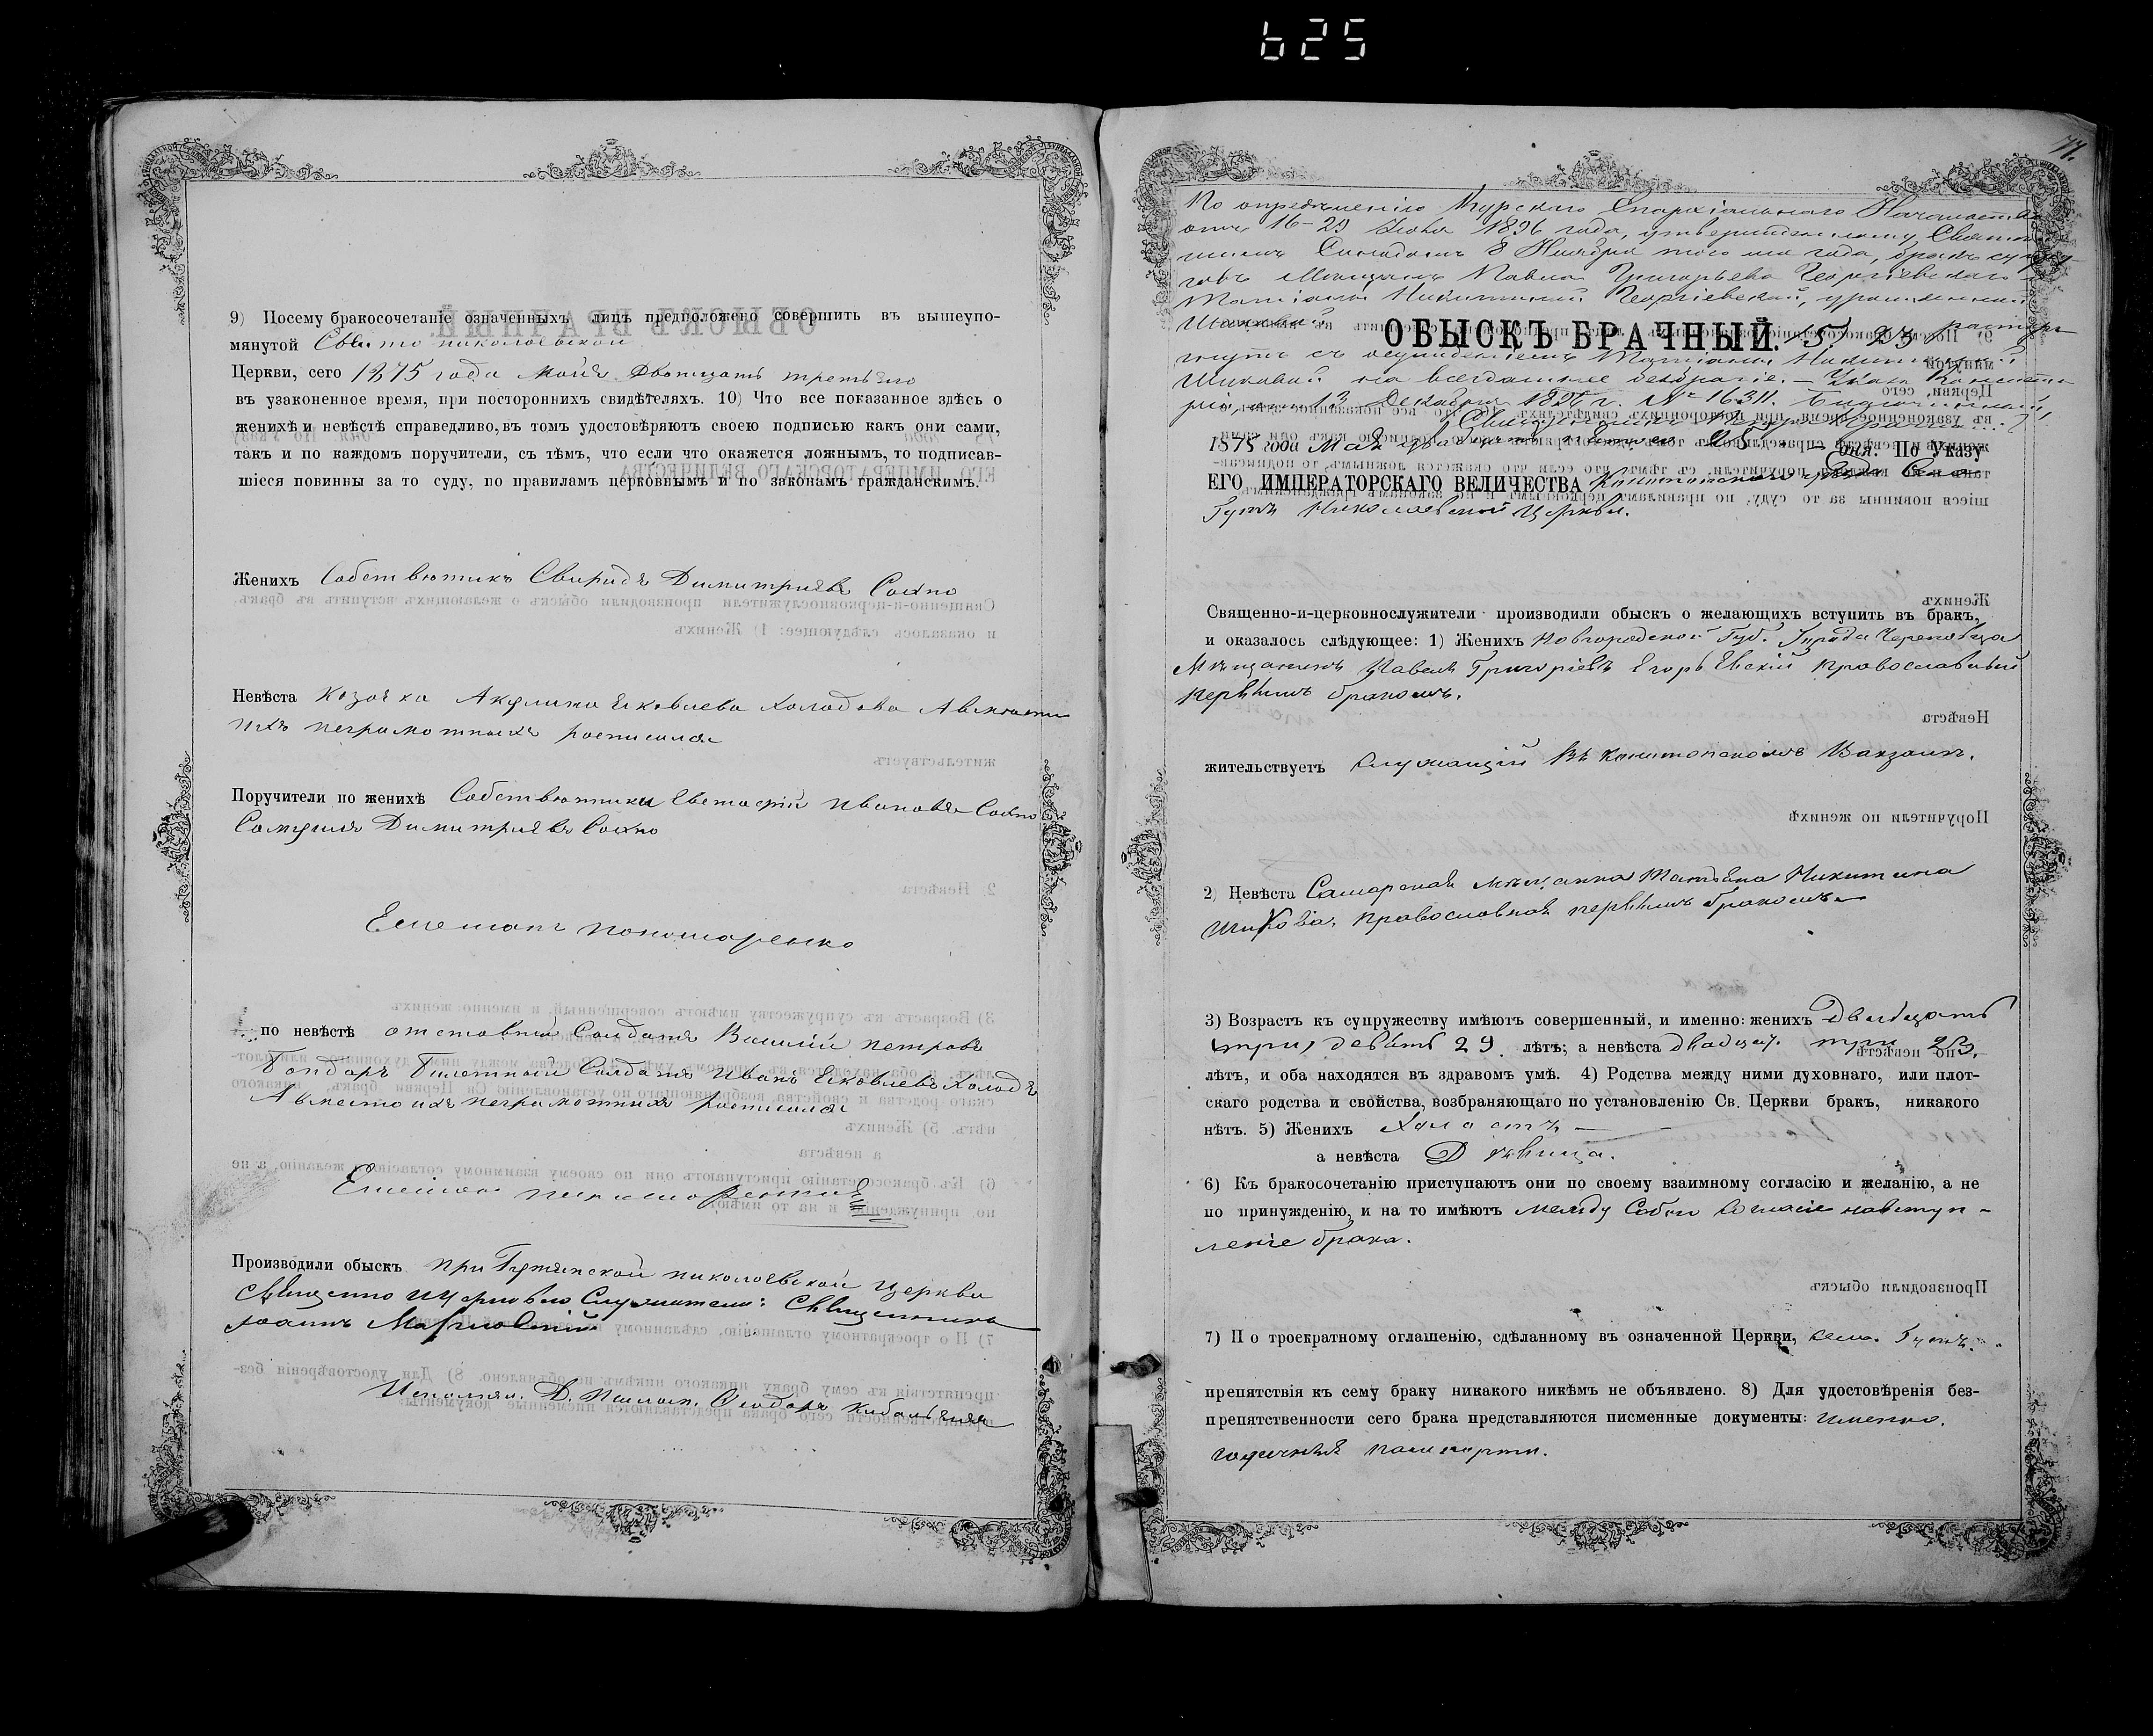 625
9) Посему бракосочетаніе означенныхъ лицъ предположено совершить въ вышеупо-
мянутой Свято николаевской
Церкви, сего 1875 года Мая Двотцать третьяго
въ узаконенное время, при постороннихъ свидѣтеляхъ. 10) Что все показанное здѣсь о
женихѣ и невѣстѣ справедливо, въ томъ удостовѣряютъ своею подписью какъ они сами,
такъ и по каждомъ поручители, съ тѣмъ, что если что окажется ложнымъ, то подписав-
шіеся повинны за то суду, по правиламъ церковнымъ и по законамъ гражданскимъ.
Женихъ Собствютикъ Свиридъ Димитриявъ Сохно
Невѣста Козочка Акулина Яковлева Холодова Авместо
ихъ неграмотныхъ росписался
Поручители по женихѣ Собствютики Евстафій ивановъ Сохно
Самуилъ Димитриявъ Сохно
Емельянъ пономаренко
по невѣстѣ отставный Солдатъ Василій петровъ
Бондарь Билетный Солдатъ Иванъ Яковлевъ Холодъ
Авместо ихъ неграмотныхъ росписался
Емельянъ пономаренко
Производили обыскъ при Гутянской николаевской Церкви
Священно Церковно Служители: Священникъ
Іоаннъ
Исполнял. Д. Псалом. Ѳеодоръ
77.
По опредѣленію Курскаго Епархіальнаго Начальства
отъ 16–29 Іюля 1896 года, утвержденному Святѣй
шимъ Синодомъ 8 Ноября того же года, бракъ супру
говъ Мѣщанъ Павла Григорьева Георгіевскаго и
Татіаны Никитиной Георгіевской, урожденной
Шиковой,
ОБЫСКЪ БРАЧНЫЙ. расторг
нутъ съ осужденіемъ Татіаны Никитиной
Шиковой на всегдашнее безбрачіе. – Указъ Консисто
ріи, отъ 13 Декабря 1896 г. № 16311.
Священникъ
1875 года Мая двадцать 25 – Дня. По Указу
ЕГО ИМПЕРАТОРСКАГО ВЕЛИЧЕСТВА Конотопскаго уѣзда Села
Гутъ Николаевской Церкви.
Священно-и-церковнослужители производили обыскъ о желающихъ вступить въ бракъ,
и оказалось слѣдующее: 1) Женихъ Новгородской Губ. Уѣзда Череповца
Мѣщанинъ Павелъ Григоріевъ Егорьевскій православный
первымъ бракомъ.
жительствуетъ Служащій въ конотопскомъ Вокзалѣ.
2) Невѣста Самарская мѣщанка Татьяна Никитина
Шикова, православная первымъ бракомъ
3) Возрастъ къ супружеству имѣютъ совершенный, и именно: женихъ Двадцать
девять 29 лѣтъ; а невѣста двадцат. три 23.
лѣтъ, и оба находятся въ здравомъ умѣ. 4) Родства между ними духовнаго, или плот-
скаго родства и свойства, возбраняющаго по установленію Св. Церкви бракъ, никакого
нѣтъ. 5) Женихъ Холостъ –
а невѣста Дѣвица.
6) Къ бракосочетанію приступаютъ они по своему взаимному согласію и желанію, а не
по принужденію, и на то имѣютъ между Собой Согласіе навступ –
леніе брака.
7) По троекратному оглашенію, сдѣланному въ означенной Церкви, села Гутъ.
препятствія къ сему браку никакого никѣмъ не объявлено. 8) Для удостовѣренія без-
препятственности сего брака представляются писменные документы: именно.
годичныя паспорты.